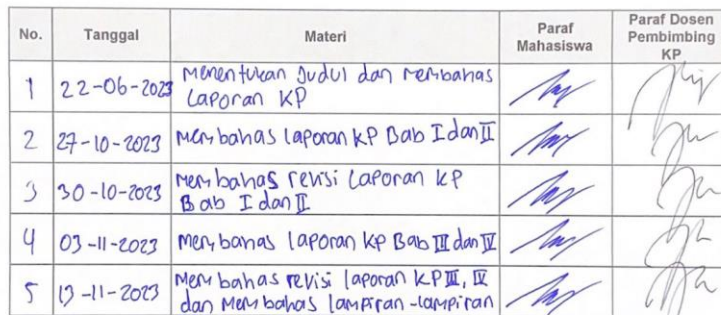 No. Tanggal Materi Paraf Mahasiswa Paraf Dosen Pembimbing KP
1 22-06-2023 Menentukan Judul dan Membahas
Laporan KP
2 27-10-2023 Membahas laporan KP Bab I dan II
3 30-10-2023 Membahas revisi Laporan KP
Bab I dan II
4 03-11-2023 Membahas laporan KP Bab III dan IV
5 13-11-2023 Membahas revisi laporan KP III, IV
dan Membahas lampiran-lampiran